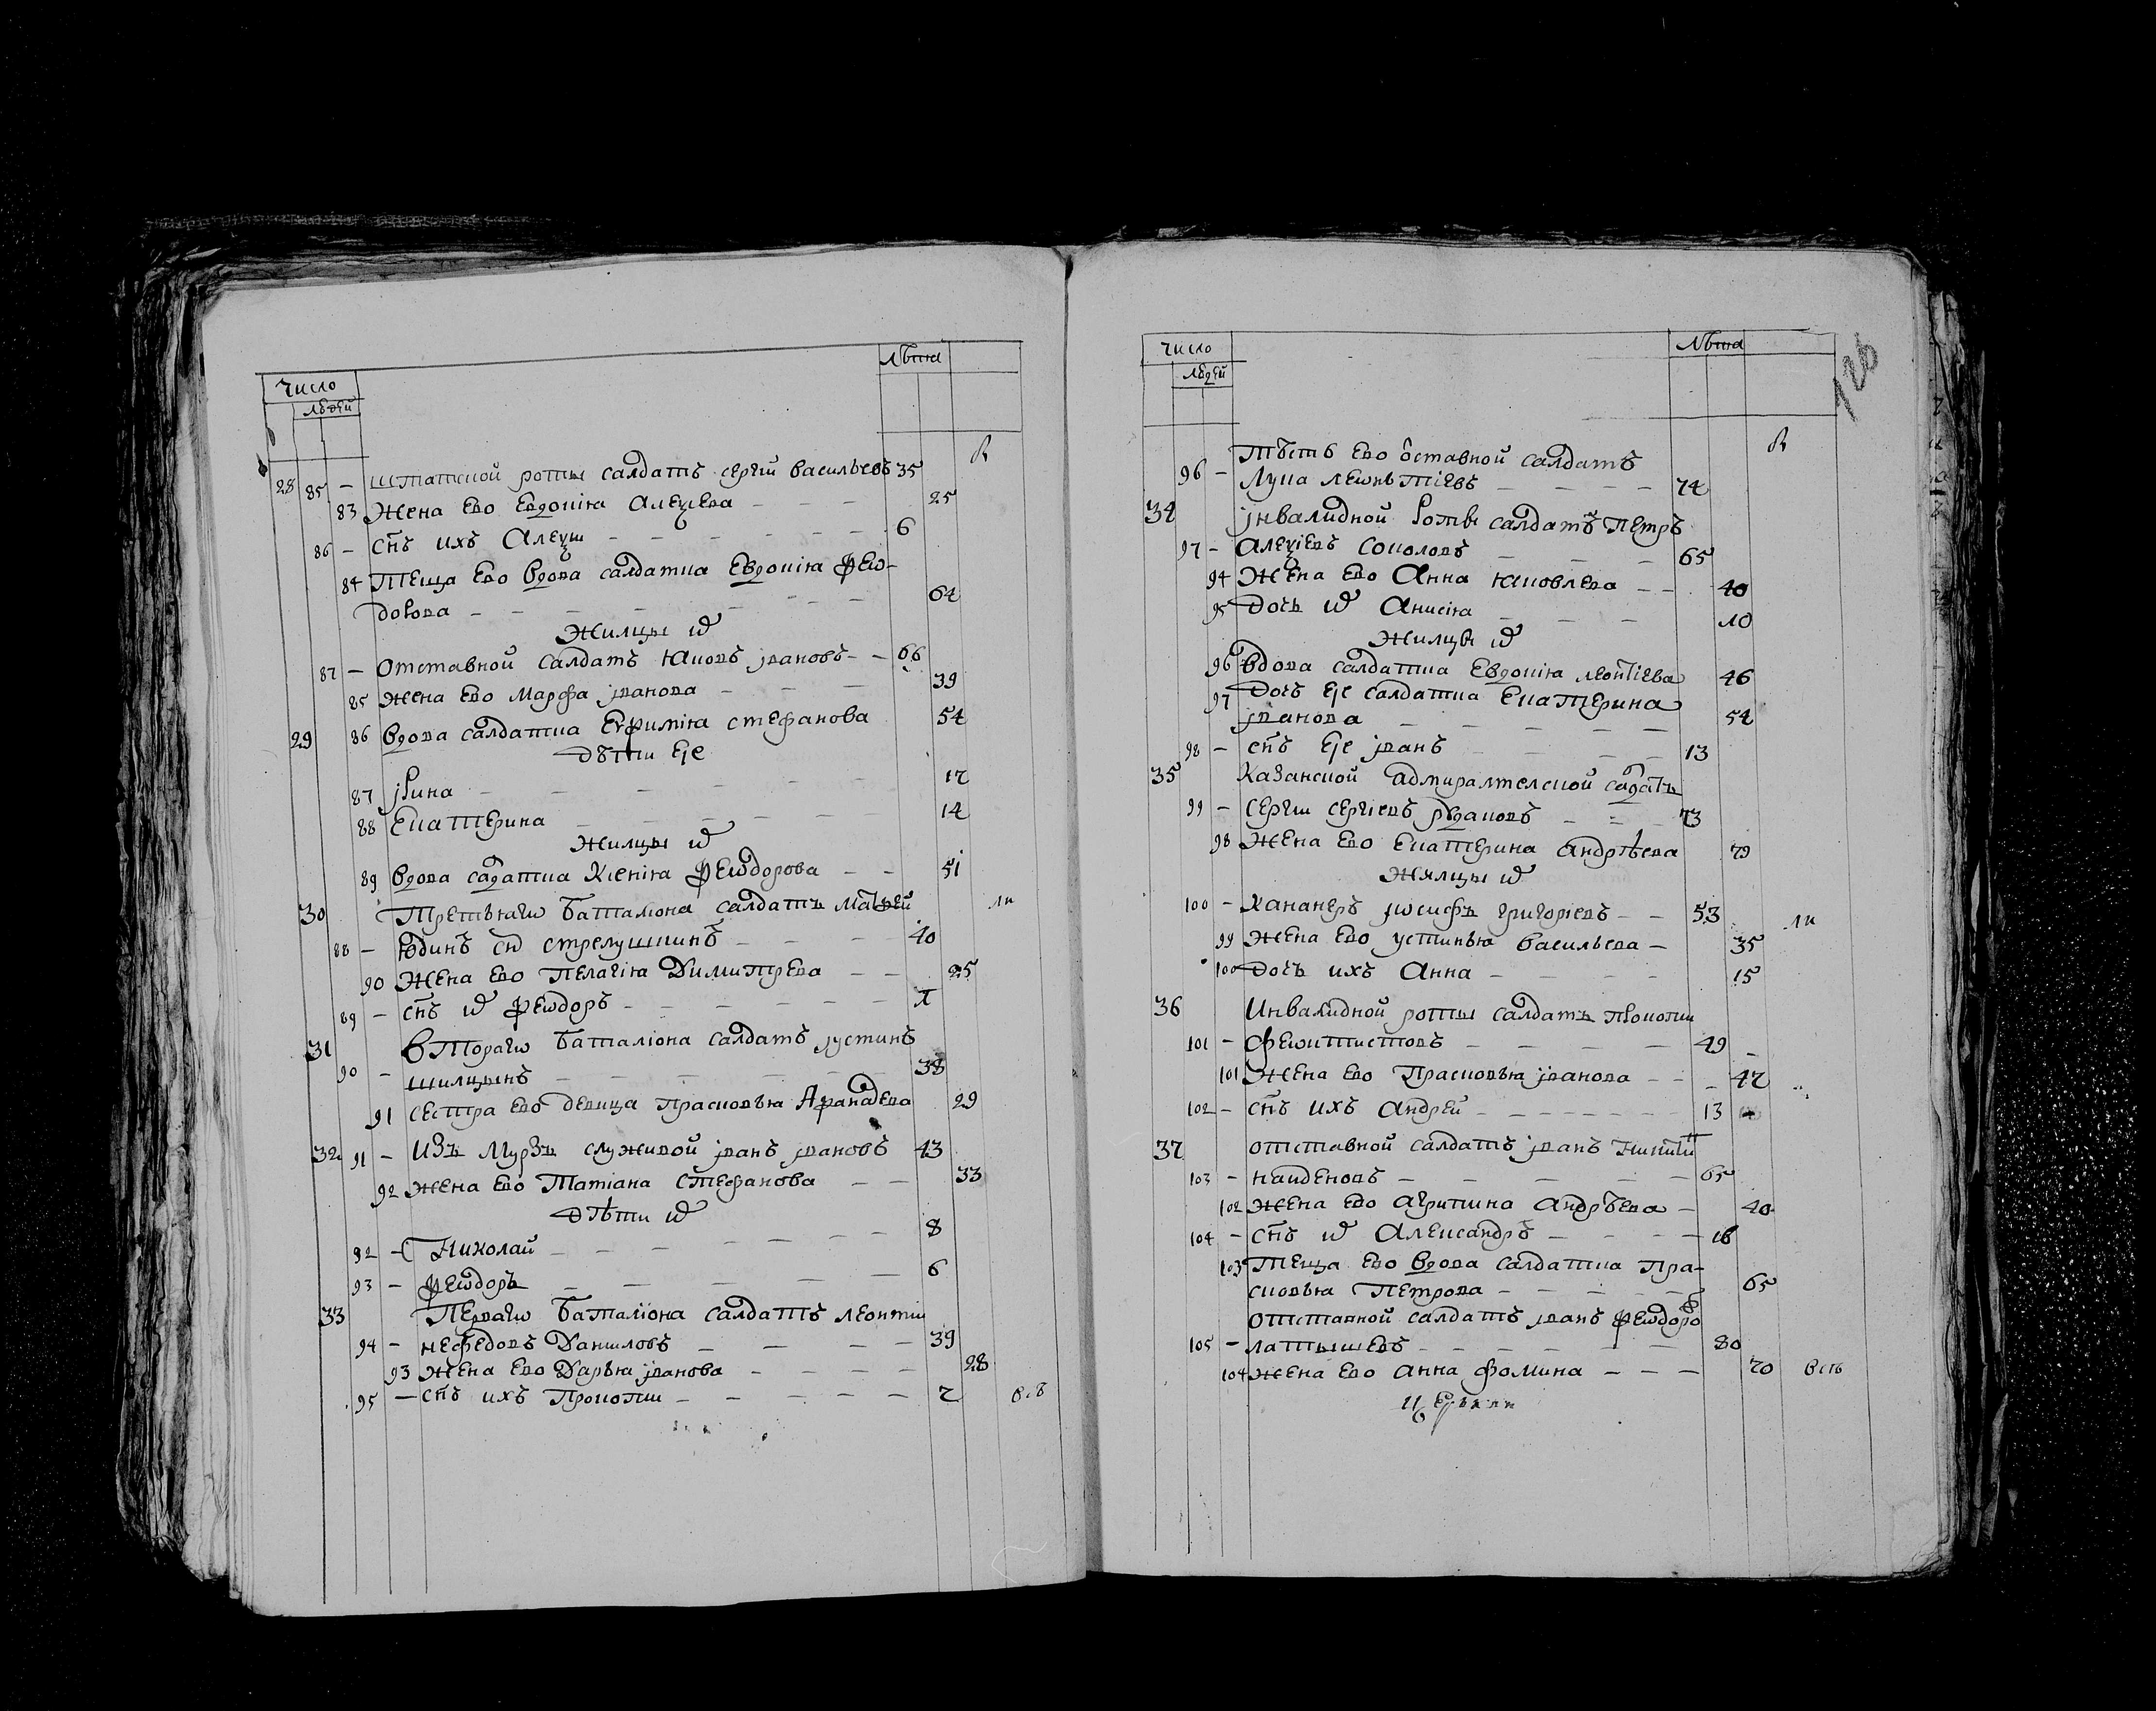 число
людей
лѣта
28 85 – штатской роты салдатъ сергій васильевъ 35
83 жена ево Евдокіѧ алеѯеева – – – 25
86 – сн҃ъ ихъ Алеѯѣи – – – 6
84 теща ево вдова салдатка Евдокіѧ ѳеѡ-
дорова – – – 64
жилцы их
87 – отставной салдатъ ꙗковъ івановъ – – 66
85 жена ево марѳа іванова – – – 39
29 86 вдова салдатка Еѵфиміѧ стефанова 54
дѣти Еѧ
87 ірина – – – 17
88 Екатерина – – – 14
жилцы их
89 вдова салдатка Ксеніѧ Ѳеѡдорова – – 51
30 Третьѧгѡ баталіона салдатъ матѳей
88 – юдинъ сн стрелушкинъ – – – 40
90 жена ево Пелагіѧ Димитрева – – 25
89 – сн҃ъ их ѳеѡдоръ – – –
31 вторагѡ баталіона салдатъ іустинъ
90 – шилцынъ – – – 38
91 сестра ево девица прасковьѧ Аѳанасева 29
32 91 – изъ мурзъ служивой іванъ івановъ 43
92 жена ево татіана стефанова – – 33
дѣти их
92 – Николай – – – 8
93 – ѳеѡдоръ – – – 6
33 Первагѡ баталіона салдатъ леонтіи
94 – неѳедовъ Даниловъ – – – 39
93 жена ево Дарьѧ іванова – – – 28
95 – сн҃ъ ихъ Прокопіи – – – 2
число
людей
лѣта
126
тѣсть ево ѻставной салдатъ
96 – Лука леѡнтіевъ – – – 74
34 інвалидной роты салдатъ петръ
97 – алеѯіевъ соколовъ – – – 65
94 жена ево Анна ꙗковлева – – 40
95 дочь их Анисіѧ – – – 10
жилцы их
96 вдова салдатка Евдокіѧ леонтіева 46
97 дочь Еѧ салдатка Екатерина
іванова – – – 54
98 – сн҃ъ Еѧ іванъ – – – 13
35 Казанской адмиралтелской салдатъ
99 – сергіи сергіевъ – – – 73
98 жена ево Екатерина андрѣева 79
жилцы их
100 – Кананеръ іѡсифъ григоріевъ – – 53
99 жена ево устиньѧ васильева – 35
100 дочь ихъ Анна – – – 15
36 Инвалидной роты салдатъ прокопіи
101 – Феѡктистовъ – – – 49
101 жена ево Прасковьѧ іванова – – 47
102 – сн҃ъ ихъ Андрей – – – 13
37 отставной салдатъ іванъ Никитин
103 – найденовъ – – – 65
102 жена ево агрипина андрѣева – 40
104 – сн҃ъ их Александръ – – – 16
103 теща ево вдова салдатка пра-
сковьѧ Петрова – – – 65
отставной салдатъ іванъ ѳеѡдоров
105 – латышевъ – – – 80
104 жена ево анна фомина – – – 70